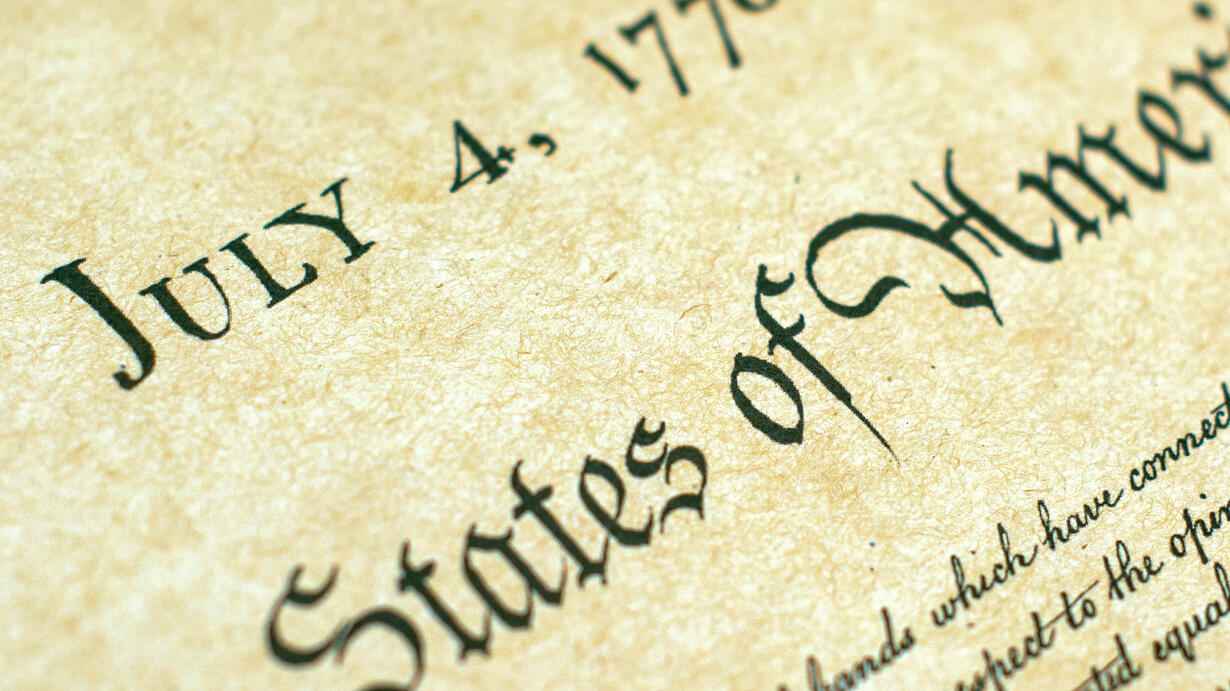 JULY 4, 1776
States of Ameri
bands which have connect
spect to the opin
ted equal